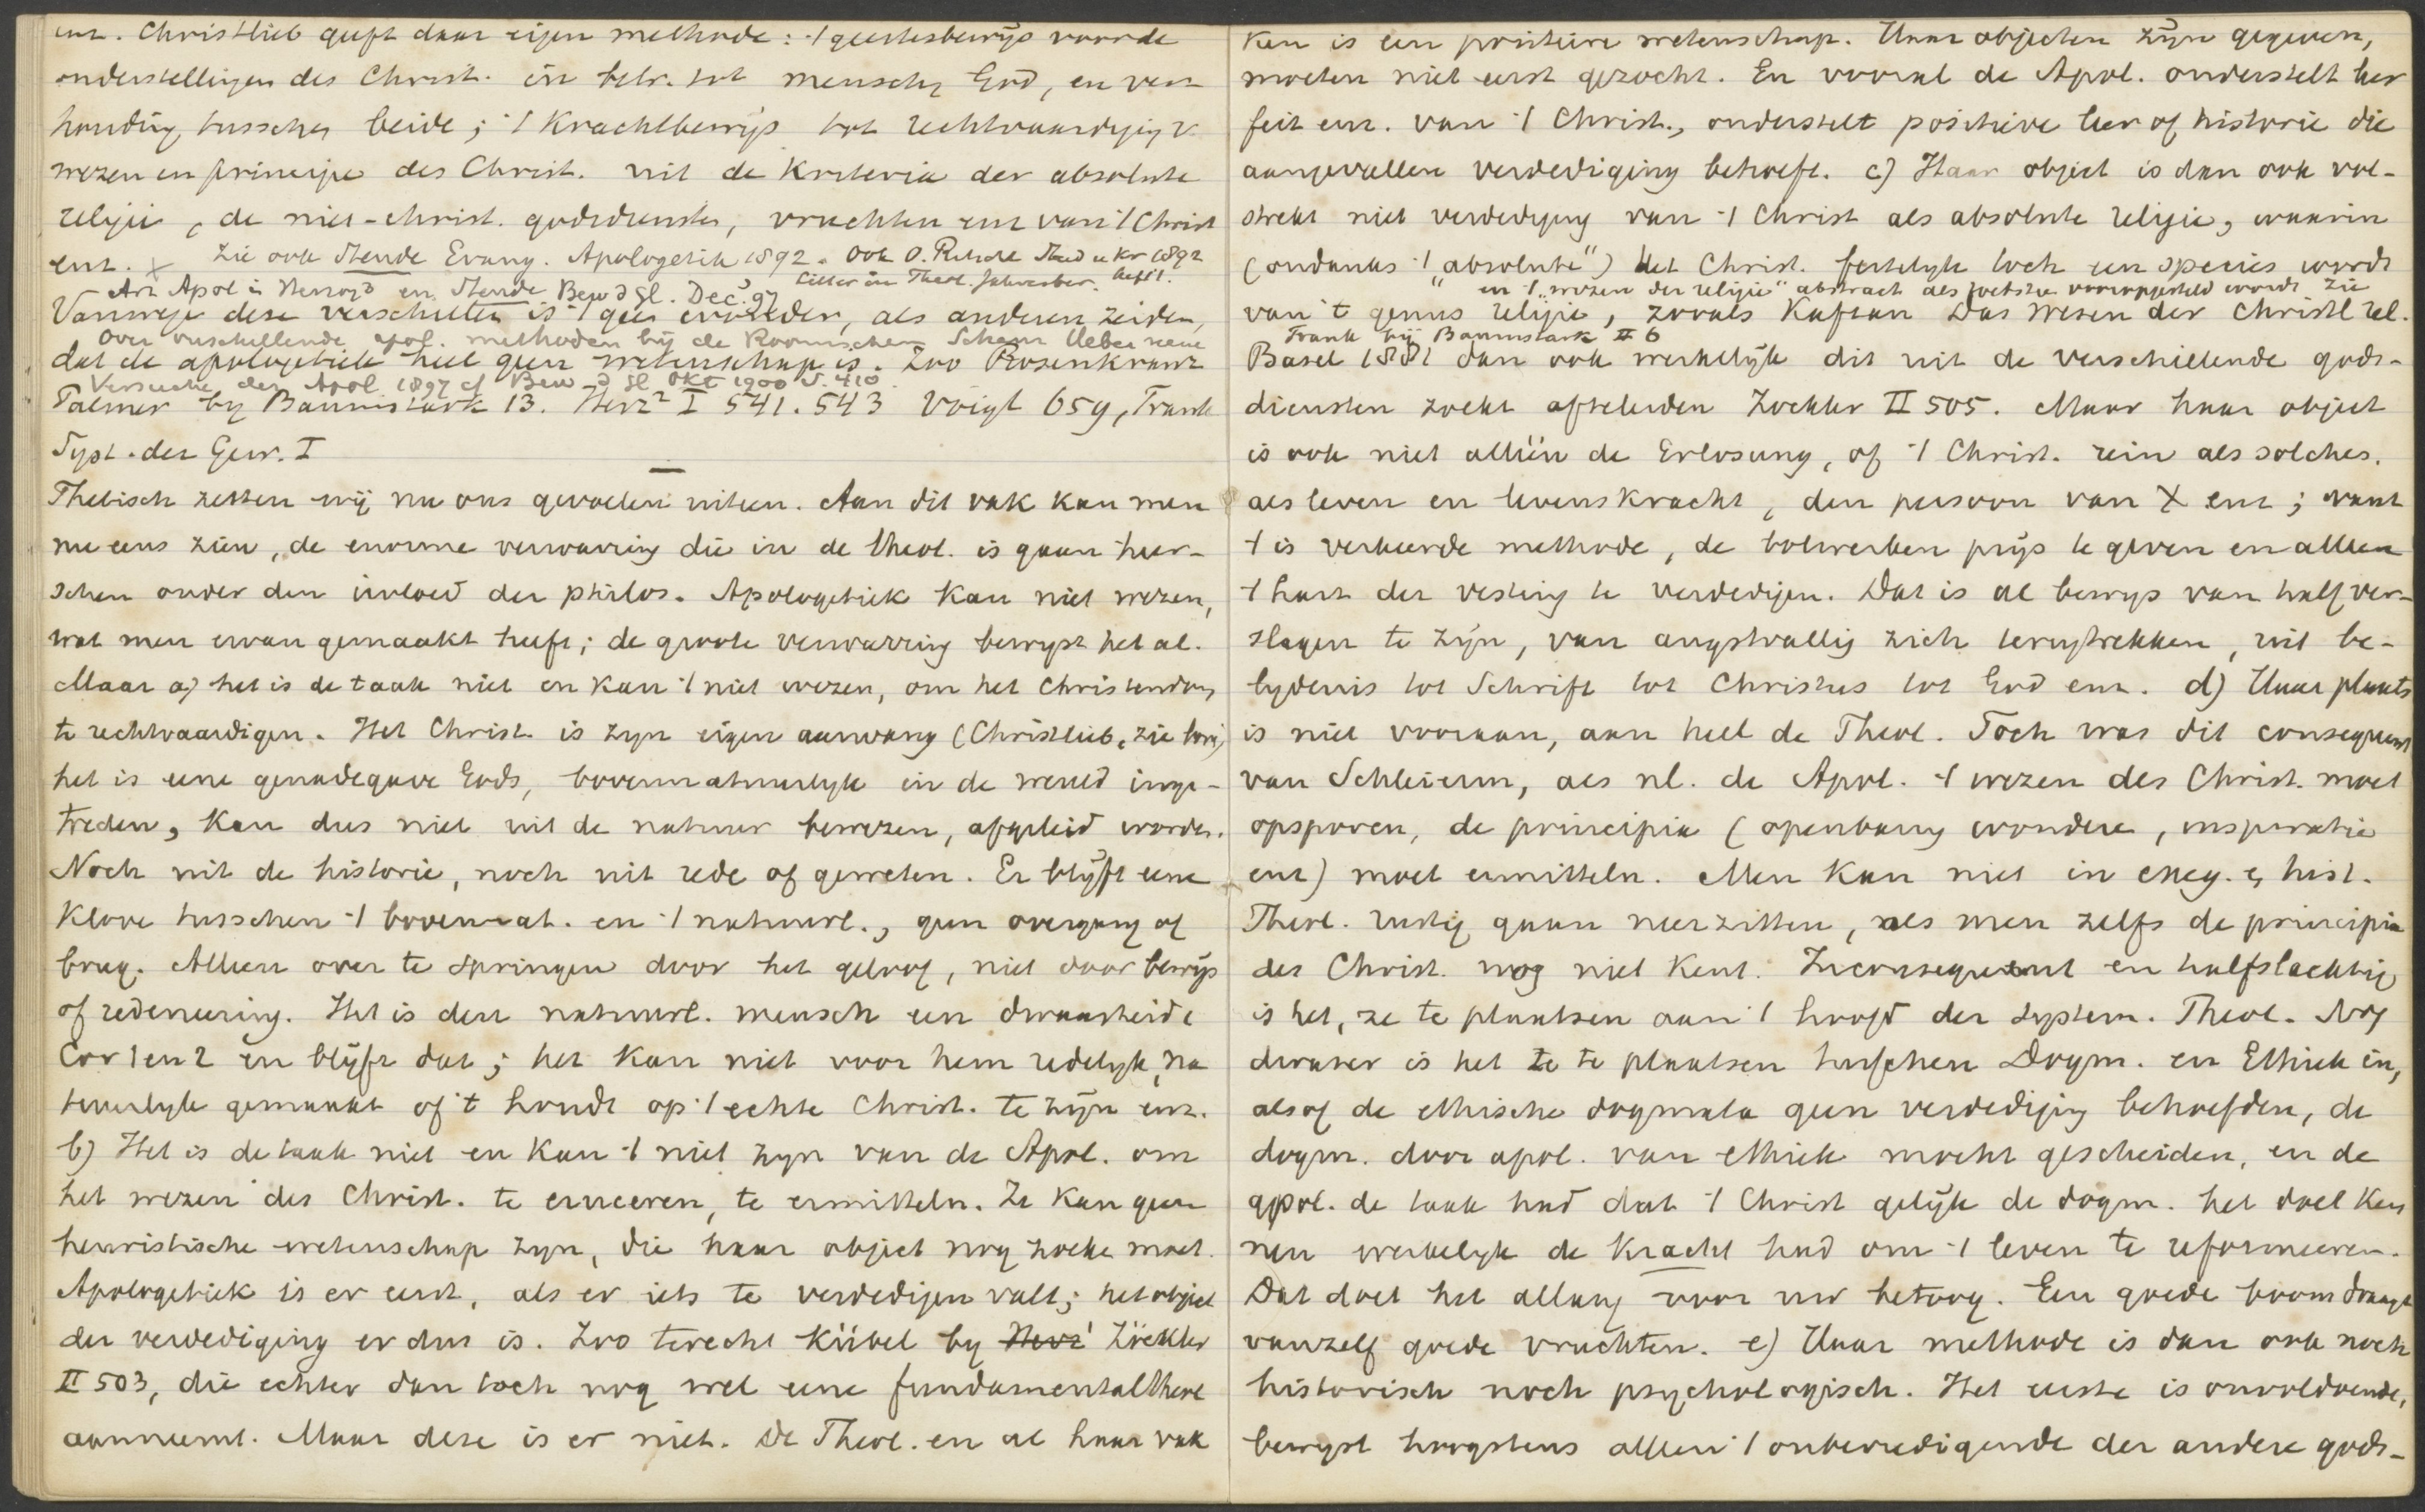 enz. Christlieb geeft daar eigen methode: 't geestesbewijs voor de
onderstellingen des Christ. in betr. tot mensch en God, en ver
houding tusschen beide; 't Krachtbewijs tot rechtvaardiging v.
wezen en principe des Christ. uit de Kriteria der absolute
religie, de niet-christ. godsdiensten, vruchten enz van 't Christ
enz. x Zie ook Steude Evang. Apologetik 1892. Ook O. Ritschl Stud u Kr 1892
Litter in Theol. Jahresber. Heft 1.
Art Apol in Herzog³ en Steude Bew d Gl. Dec. 97
Vanwege deze verschillen is 't geen wonder, als anderen zeiden,
Over verschillende apol. methoden bij de Roomschen Schanz Ueber neue
dat de apologetiek heel geen wetenschap is. Zoo Rosenkranz
Versuche der Apol 1897 cf Bew d Gl Okt 1900 S. 410
Palmer by Baumstark 13. Herz² I 541. 543 Voigt 659, Frank
Syst. der Gew. I
Thetisch zetten wij nu ons gevoelen uiteen. Aan dit vak kan men
nu eens zien, de enorme verwarring die in de theol. is gaan heer-
schen onder den invloed der philos. Apologetiek kan niet wezen,
wat men ervan gemaakt heeft; de groote verwarring bewyst het al.
Maar a) het is de taak niet en kan 't niet wezen, om het Christendom
te rechtvaardigen. Het Christ. is zyn eigen aanvang (Christlieb, zie bov.)
het is eene genadegave Gods, bovennatuurlyk in de wereld inge-
treden, kan dus niet uit de natuur bewezen, afgeleid worden.
Noch uit de historie, noch uit rede of geweten. Er blijft eene
Klove tusschen 't bovennat. en 't natuurl., geen overgang of
brug. Alleen over te springen door het geloof, niet door bewijs
of redeneering. Het is den natuurl. mensch een dwaasheid
Cor 1 en 2 en blijft dat; het kan niet voor hem redelyk, na
tuurlyk gemaakt of 't houdt op 't echte Christ. te zijn enz.
b) Het is de taak niet en kan 't niet zyn van de Apol. om
het wezen des Christ. te erueeren, te ermitteln. Ze kan geen
heuristische wetenschap zyn, die haar object nog zoeken moet.
Apologetiek is er eerst, als er iets te verdedigen valt; het object
der verdediging er dus is. Zoo terecht Kübel by Herz¹ Zöckler
II 503, die echter dan toch nog wel eene fundamentaltheol
aanneemt. Maar deze is er niet. De Theol. en al haar vak
ken is een positieve wetenschap. Haar objecten zijn gegeven,
moeten niet eerst gezocht. En vooral de Apol. onderstelt her
feit enz. van 't Christ., onderstelt positieve leer of historie die
aangevallen verdediging behoeft. c) Haar object is dan ook vol-
strekt niet verdediging van 't Christ als absolute religie, waarin
(ondanks 't „absolute") het Christ. feitelyk toch een species wordt
en 't „wezen der religie" abstract als toetssteen vooropgesteld wordt zie
van 't genus religie, zooals Kaftan Das Wesen der Christl rel.
Frank bij Baumstark II 6
Basel 1881 dan ook werkelijk dit uit de verschillende gods-
diensten zoekt afteleiden Zöckler II 505. Maar haar object
is ook niet alleen de Erlosung, of 't Christ. rein als solches.
als leven en levenskracht, den persoon van X enz; want
't is verkeerde methode, de bolwerken prijs te geven en alleen
't hart der vesting te verdedigen. Dat is al bewys van half ver-
slagen te zijn, van angstvallig zich terugtrekken, uit be-
lydenis tot Schrift tot Christus tot God enz. d) Haar plaats
is niet vooraan, aan heel de Theol. Toch was dit consequent
van Schleierm, als nl. de Apol. 't wezen des Christ. moet
opsporen, de principia (openbaring wonderen, inspiratie
enz) moet ermitteln. Men kan niet in exeg. en hist.
Theol. rustig gaan neerzitten, als men zelfs de principia
des Christ. nog niet kent. Inconsequent en halfslachtig
is het, ze te plaatsen aan 't hoofd der system. Theol. Nog
dwazer is het ze te plaatsen tusschen Dogm. en Ethiek in,
alsof de ethische dogmata geen verdediging behoefden, de
dogm. door apol. van ethiek mocht gescheiden, en de
apol. de taak had dat 't Christ gelijk de dogm. het doel Ken
nen werkelyk de Kracht had om 't leven te reformeeren.
Dat doet het allang voor uw betoog. Een goede boom draagt
vanzelf goede vruchten. e) Haar methode is dan ook noch
historisch noch psychologisch. Het eerste is onvoldoende,
bewyst hoogstens alleen 't onbevredigende der andere gods-